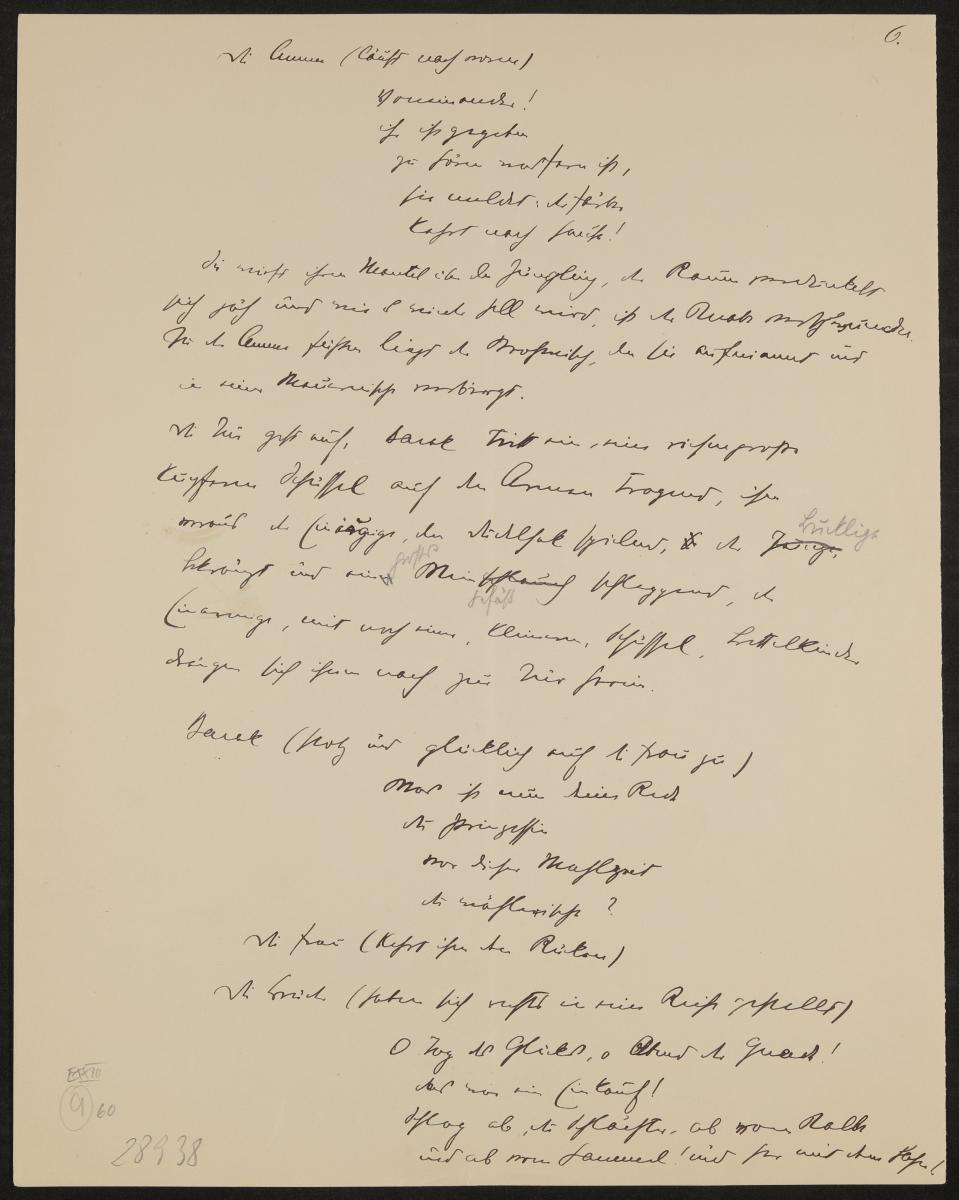 6.
Die Amme (läuft nach vorne)
Voneinander!
ihr ist gegeben
zu hören was fern ist,
sie meldet: der Färber
kehrt nach Haus!
Sie wirft ihren Mantel über den Jüngling, der Raum verdunkelt
sich jäh und wie es wieder hell wird, ist der Knabe verschwunden.
Zu der Amme Füßen liegt der Strohwisch, den sie aufnimmt und
in seiner Mauernische verbirgt.
Die Tür geht auf, Barak tritt ein, eine riesengroße
kupferne Schüssel auf den Armen tragend, ihm
voraus der Einäugige, den Dudelsack spielend, der Junge, Bucklige
bekränzt und ein großes Weinschlauch Gefäß schleppend, der
Einarmige, mit noch einer, kleineren, Schüssel. Bettelkinder
drängen sich ihnen nach zur Tür herein.
Barak (stolz und glücklich auf die Frau zu)
Was ist nun deine Rede
du Prinzessin
vor dieser Mahlzeit
du wählerische?
Die Frau (kehrt ihm den Rücken)
Die Brüder (haben sich rechts in eine Reihe gestellt)
O Tag des Glücks, o Abend der Gnade!
das war ein Einkauf!
Schlag ab, du Schlächter, ab vom Kalbe
und ab vom Hammel! und her mit dem Hahn!
XXIII
9 60
28938